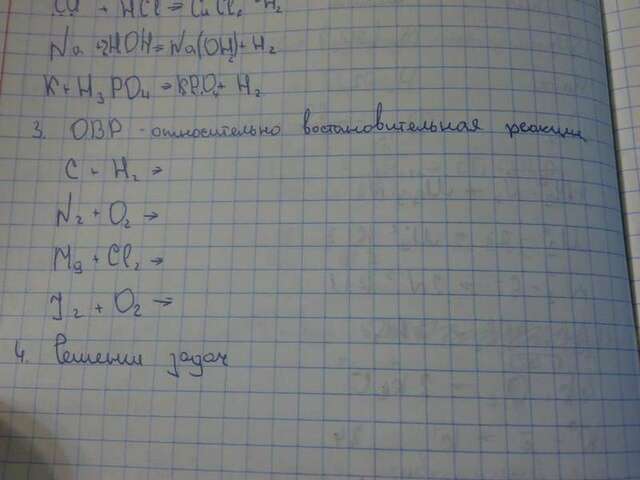 Cu + HCl = CuCl₂ + H₂
Na + 2HOH = Na(OH)₂ + H₂
K + H₃PO₄ → KPO₄ + H₂
3. ОВР - относительно востановительная реакции
C + H₂ →
N₂ + O₂ →
Mg + Cl₂ →
J₂ + O₂ →
4. Решении задач